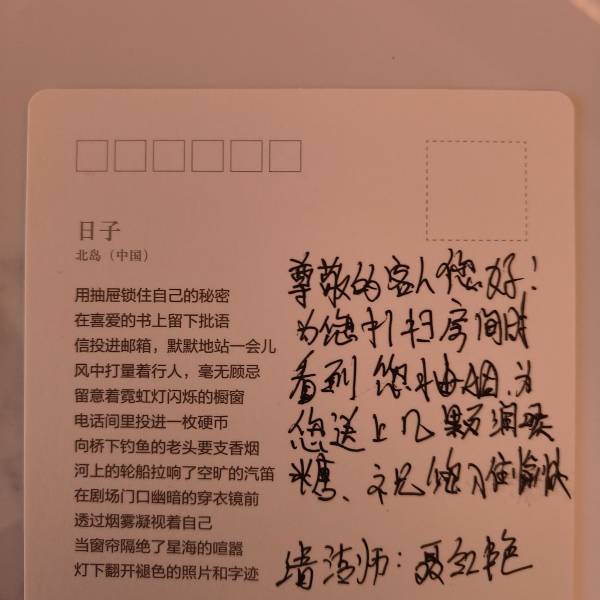 日子
北岛（中国）
用抽屉锁住自己的秘密
在喜爱的书上留下批语
信投进邮箱，默默地站一会儿
风中打量着行人，毫无顾忌
留意着霓虹灯闪烁的橱窗
电话间里投进一枚硬币
向桥下钓鱼的老头要支香烟
河上的轮船拉响了空旷的汽笛
在剧场门口幽暗的穿衣镜前
透过烟雾凝视着自己
当窗帘隔绝了星海的喧嚣
灯下翻开褪色的照片和字迹
尊敬的客人您好！
为您打扫房间时
看到您抽烟、为
您送上几颗润喉
糖、祝您入住愉快
清洁师：聂红艳